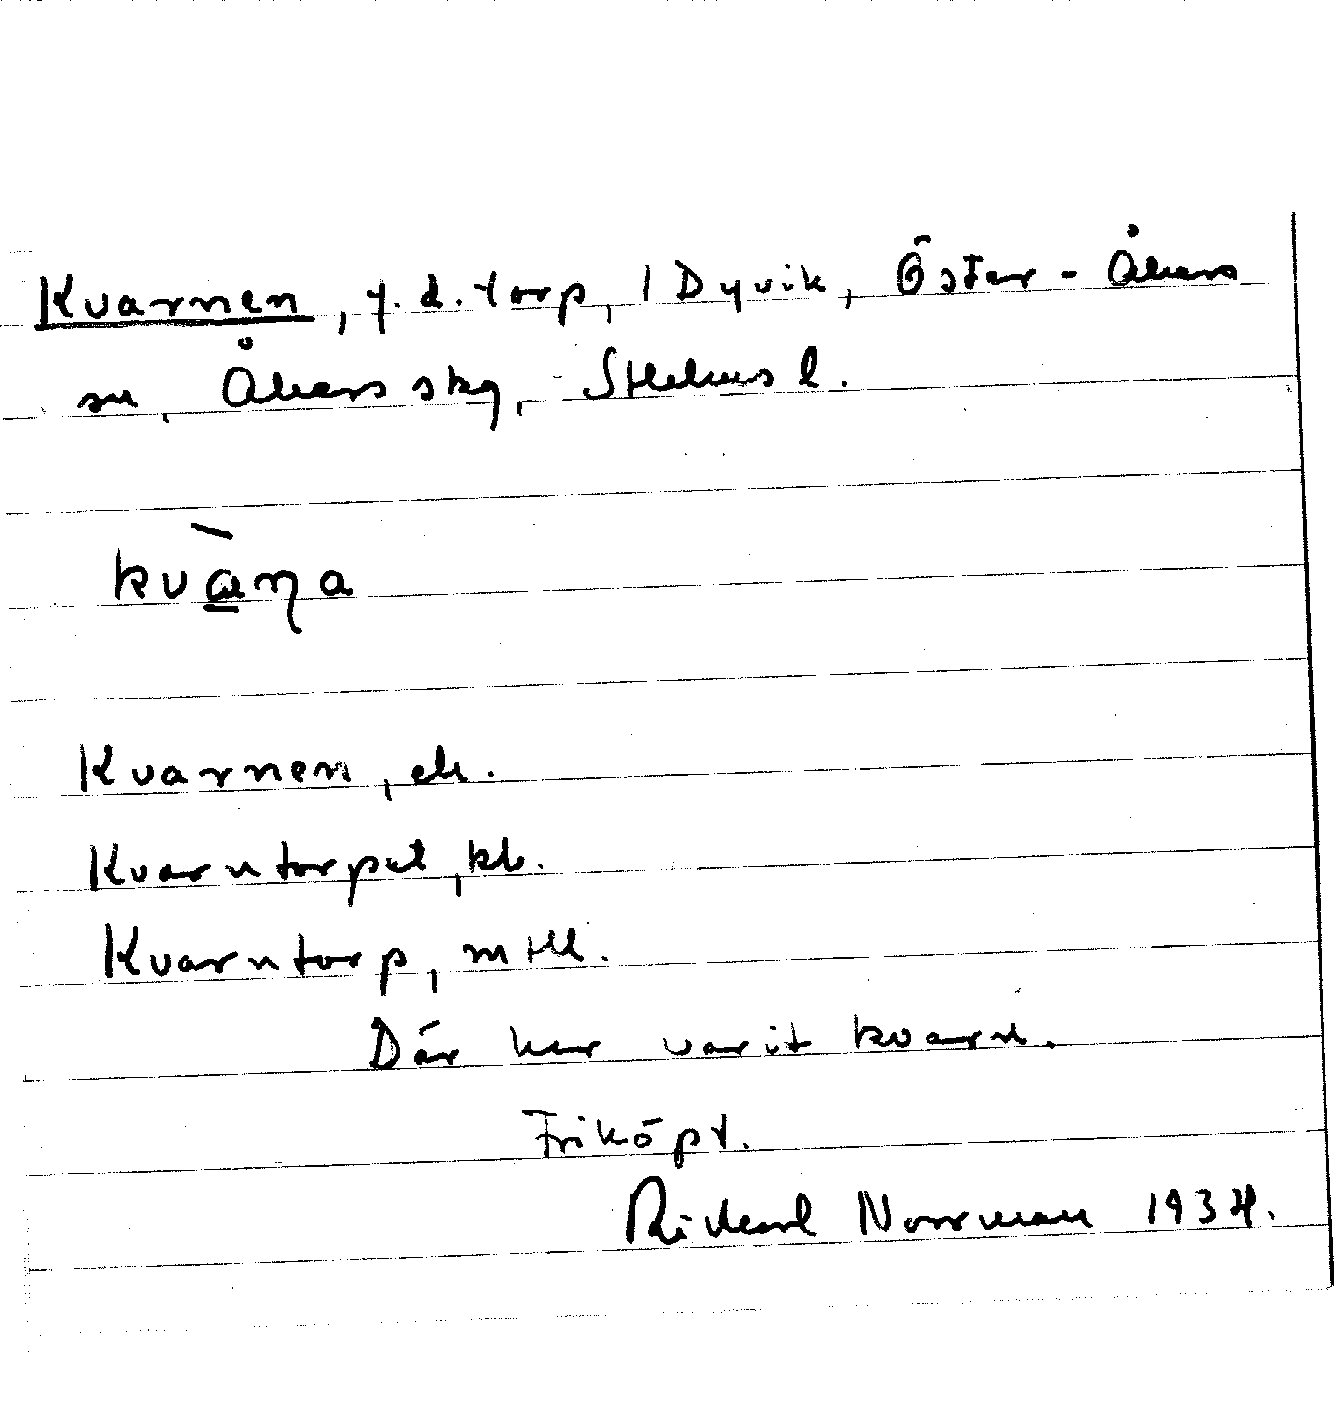 Kvarnen, f. d. torp, 1 Dyvik, Öster-Åkers
sn, Åkers skg, Sthlms l.
kvàṇa
Kvarnen, ek.
Kvarntorpet, kb.
Kvarntorp, mtll.
Där har varit kvarn.
Friköpt.
Rickard Norrman 1934.